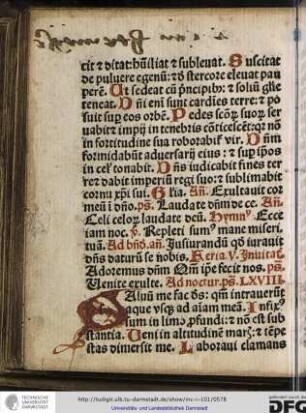 cit & ditat: hũiliat & subleuat. Suscitat
de puluere egenũ: & d̃ stercore eleuat pau
perẽ. Ut sedeat cũ p̃ncipibꝰ: & soliũ glie
teneat. Dñi eni sunt cardiẽs terre: & po
suit sup̱ eos orbẽ. Pedes scõꝝ suoꝝ ser
uabit & impij in tenebris cõticescẽt: qꝛ nõ
in fortitudine sua roborabiť vir. Dñm
formidabũt aduersarij eius: & sup̱ ip̃os
in cel' tonabit. Dñs iudicabit fines ter
re & dabit imperiũ regi suo: & sublimabit
cornu xp̃i sui. Gl'ia. Añ. Exultauit cor
meũ i dño. ps̃. Laudate dñm de ce. Añ.
Celi celoꝝ laudate deũ. Hymnꝰ. Ecce
iam noc. ꝟ. Repleti sumꝰ mane miseri
tuã. Ad bñd. añ. Jusiurandũ qď iurauit
dñs daturũ se nobis. Feria. V. Inuitať.
Adoremus dñm Qm̃ ip̃e fecit nos. ps̃.
Uenite exulte. Ad noctur. ps̃. LXVIII.
Saluũ me fac dš: qm̃ intrauerũt
aque vsqꝫ ad aiam meã. Infixꝰ
sum in limo ꝓfundi: & nõ est sub
stantia. Ueni in altitudinẽ marꝭ: & tẽpe
stas dimersit me. Laboraui clamans
http://tudigit.ulb.tu-darmstadt.de/show/inc-ii-101/0578
Universitäts- und Landesbibliothek Darmstadt
TECHNISCHE
UNIVERSITÄT
DARMSTADT
gefördert durch die
DFG